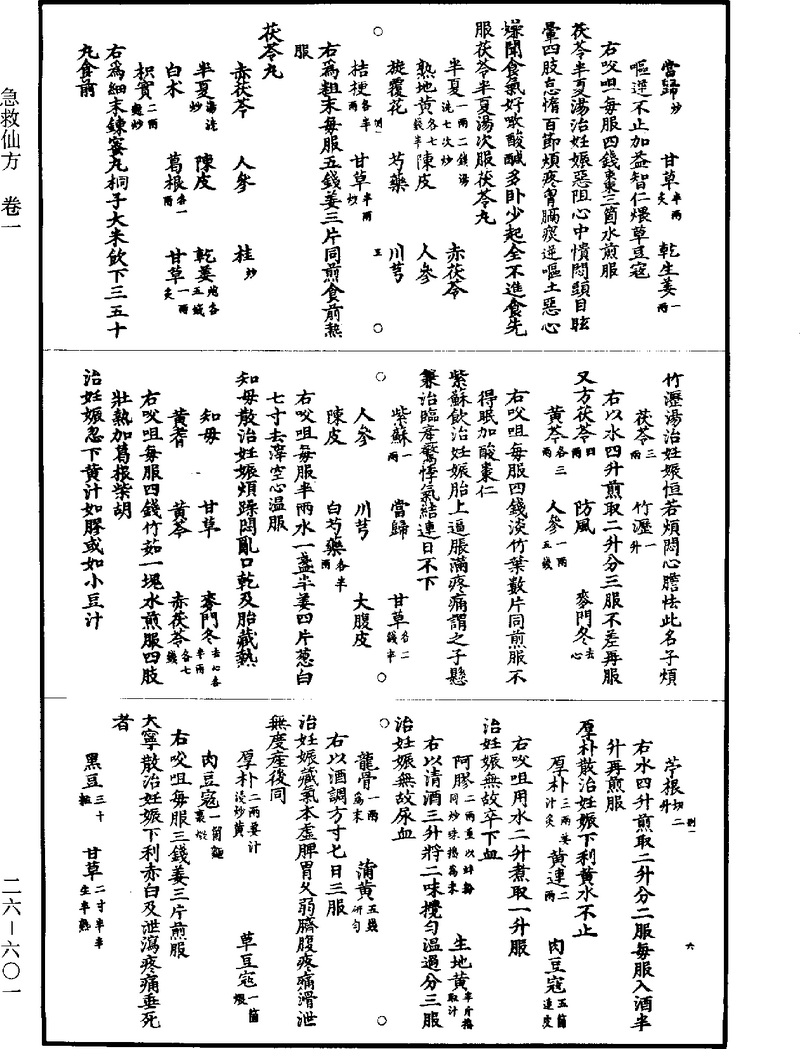 急救仙方　卷一
二六—六〇一
當歸炒　甘草半兩炙　乾生姜一兩
嘔逆不止加益智仁煨草豆蔻
右㕮咀每服四錢棗三箇水煎服
茯苓半夏湯治妊娠惡阻心中憒悶頭目眩
暈四肢怠惰百節煩疼胷膈痰逆嘔土惡心
嫌聞食氣好啾酸鹹多卧少起全不進食先
服茯苓半夏湯次服茯苓丸
半夏一兩二錢湯洗七次炒　赤茯苓
熟地黃各七錢半　陳皮　人參
旋覆花　芍藥　川芎
桔梗各半兩　甘草半兩炒
右爲粗末每服五錢姜三片同煎食前熱
服
茯苓丸
赤茯苓　人參　桂炒
半夏湯洗炒　陳皮　乾姜炮各五錢
白朮　葛根各一兩　甘草一兩炙
枳實二兩麩炒
右爲細末鍊蜜丸桐子大米飲下三五十
丸食前
竹瀝湯治妊娠恒若煩悶心膽怯此名子煩
茯苓三兩　竹瀝一升
右以水四升煎取二升分三服不差再服
又方茯苓四兩　防風　麥門冬去心
黃芩各三兩　人參一兩五錢
右㕮咀每服四錢淡竹葉數片同煎服不
得眠加酸棗仁
紫蘇飲治妊娠胎上逼脹滿疼痛謂之子懸
兼治臨產驚悸氣結連日不下
紫蘇一兩　當歸　甘草各二錢半
人參　川芎　大腹皮
陳皮　白芍藥各半兩
右㕮咀每服半兩水一盞半姜四片葱白
七寸去滓空心温服
知母散治妊娠煩躁悶亂口乾及胎藏熱
知母　甘草　麥門冬去心各半兩
黃耆　黃芩　赤茯苓各七錢
右㕮咀每服四錢竹茹一塊水煎服四肢
壯熱加葛根柴胡
治妊娠忽下黃汁如膠或如小豆汁
苧根切二升
右水四升煎取二升分二服每服入酒半
升再煎服
厚朴散治妊娠下利黃水不止
厚朴三兩姜汁炙　黃連二兩　肉豆蔻五箇連皮
右㕮咀用水二升煮取一升服
治妊娠無故卒下血
阿膠二兩　生地黃半斤搗取汁
右以清酒三升將二味攪勻温過分三服
治妊娠無故尿血
龍骨一兩爲末　蒲黃五錢研勻
右以酒調方寸七日三服
治妊娠藏氣本虛脾胃久弱臍腹疼痛滑泄
無度產後同
厚朴二兩姜汁浸炒黃　草豆蔻一箇煨
肉豆蔻一箇麵裹煨
右㕮咀每服三錢姜三片煎服
大寧散治妊娠下利赤白及泄瀉疼痛垂死
者
黑豆三十粒　甘草二寸半半生半熟
六